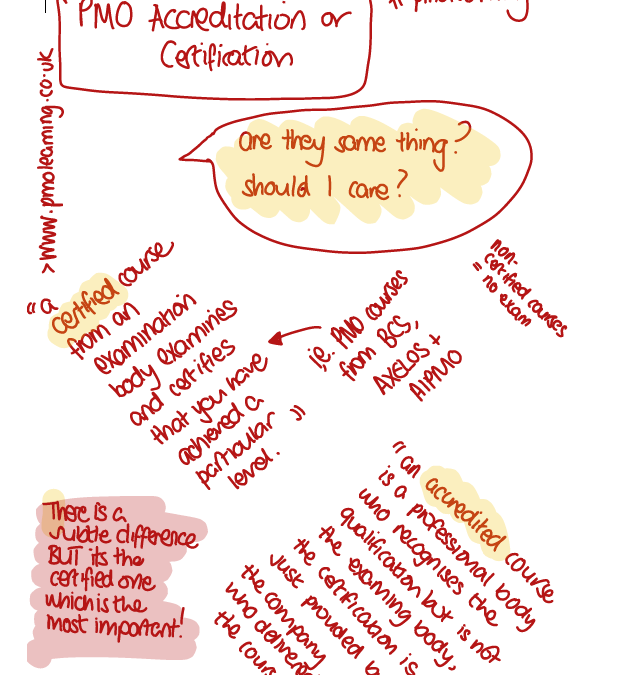 PMO Accreditation or
Certification
> www.pmolearning.co.uk
are they same thing?
should I care?
"a certified course
from an
examination
body examines
and certifies
that you have
achieved a
particular
level."
i.e. PMO courses
from BCS,
AXELOS +
AIPMO
non-
certified courses
= no exam
There is a
subtle difference
BUT its the
certified one
which is the
most important!
"an accredited course
is a professional body
who recognises the
qualification but is not
the examing body,
the certification is
just provided b
the company
who deliver
the cour